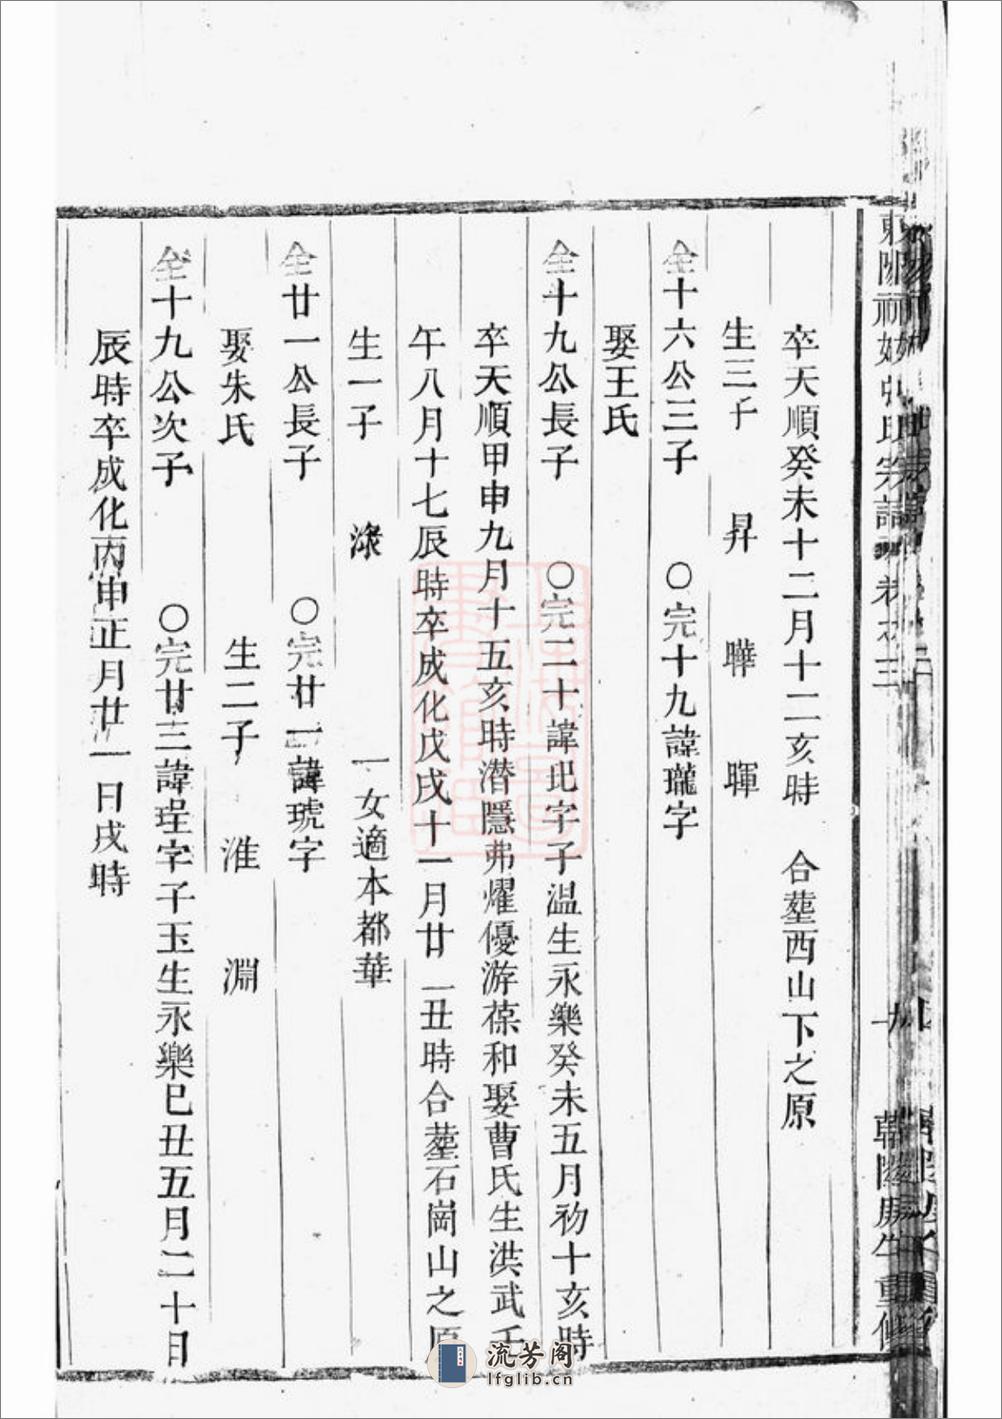 卒天順癸未十二月十二亥時 合塟西山下之原
生三子 昇 曄 暉
全十六公三子 〇完十九諱瓏字
娶王氏
全十九公長子 〇完二十諱玘字子温生永樂癸未五月初十亥時
卒天順甲申九月十五亥時潜隱弗耀優游葆和娶曹氏生洪武壬
午八月十七辰時卒成化戊戌十一月廿一丑時合塟石崗山之原
生一子 淥 一女適本都華
全廿一公長子 〇完廿一諱琥字
娶朱氏 生二子 淮 淵
全十九公次子 〇完廿三諱珵字子玉生永樂巳丑五月二十日
辰時卒成化丙申正月廿一日戌時
東陽 宗譜 卷之三
十九
重修
流芳阁
lfglib.cn